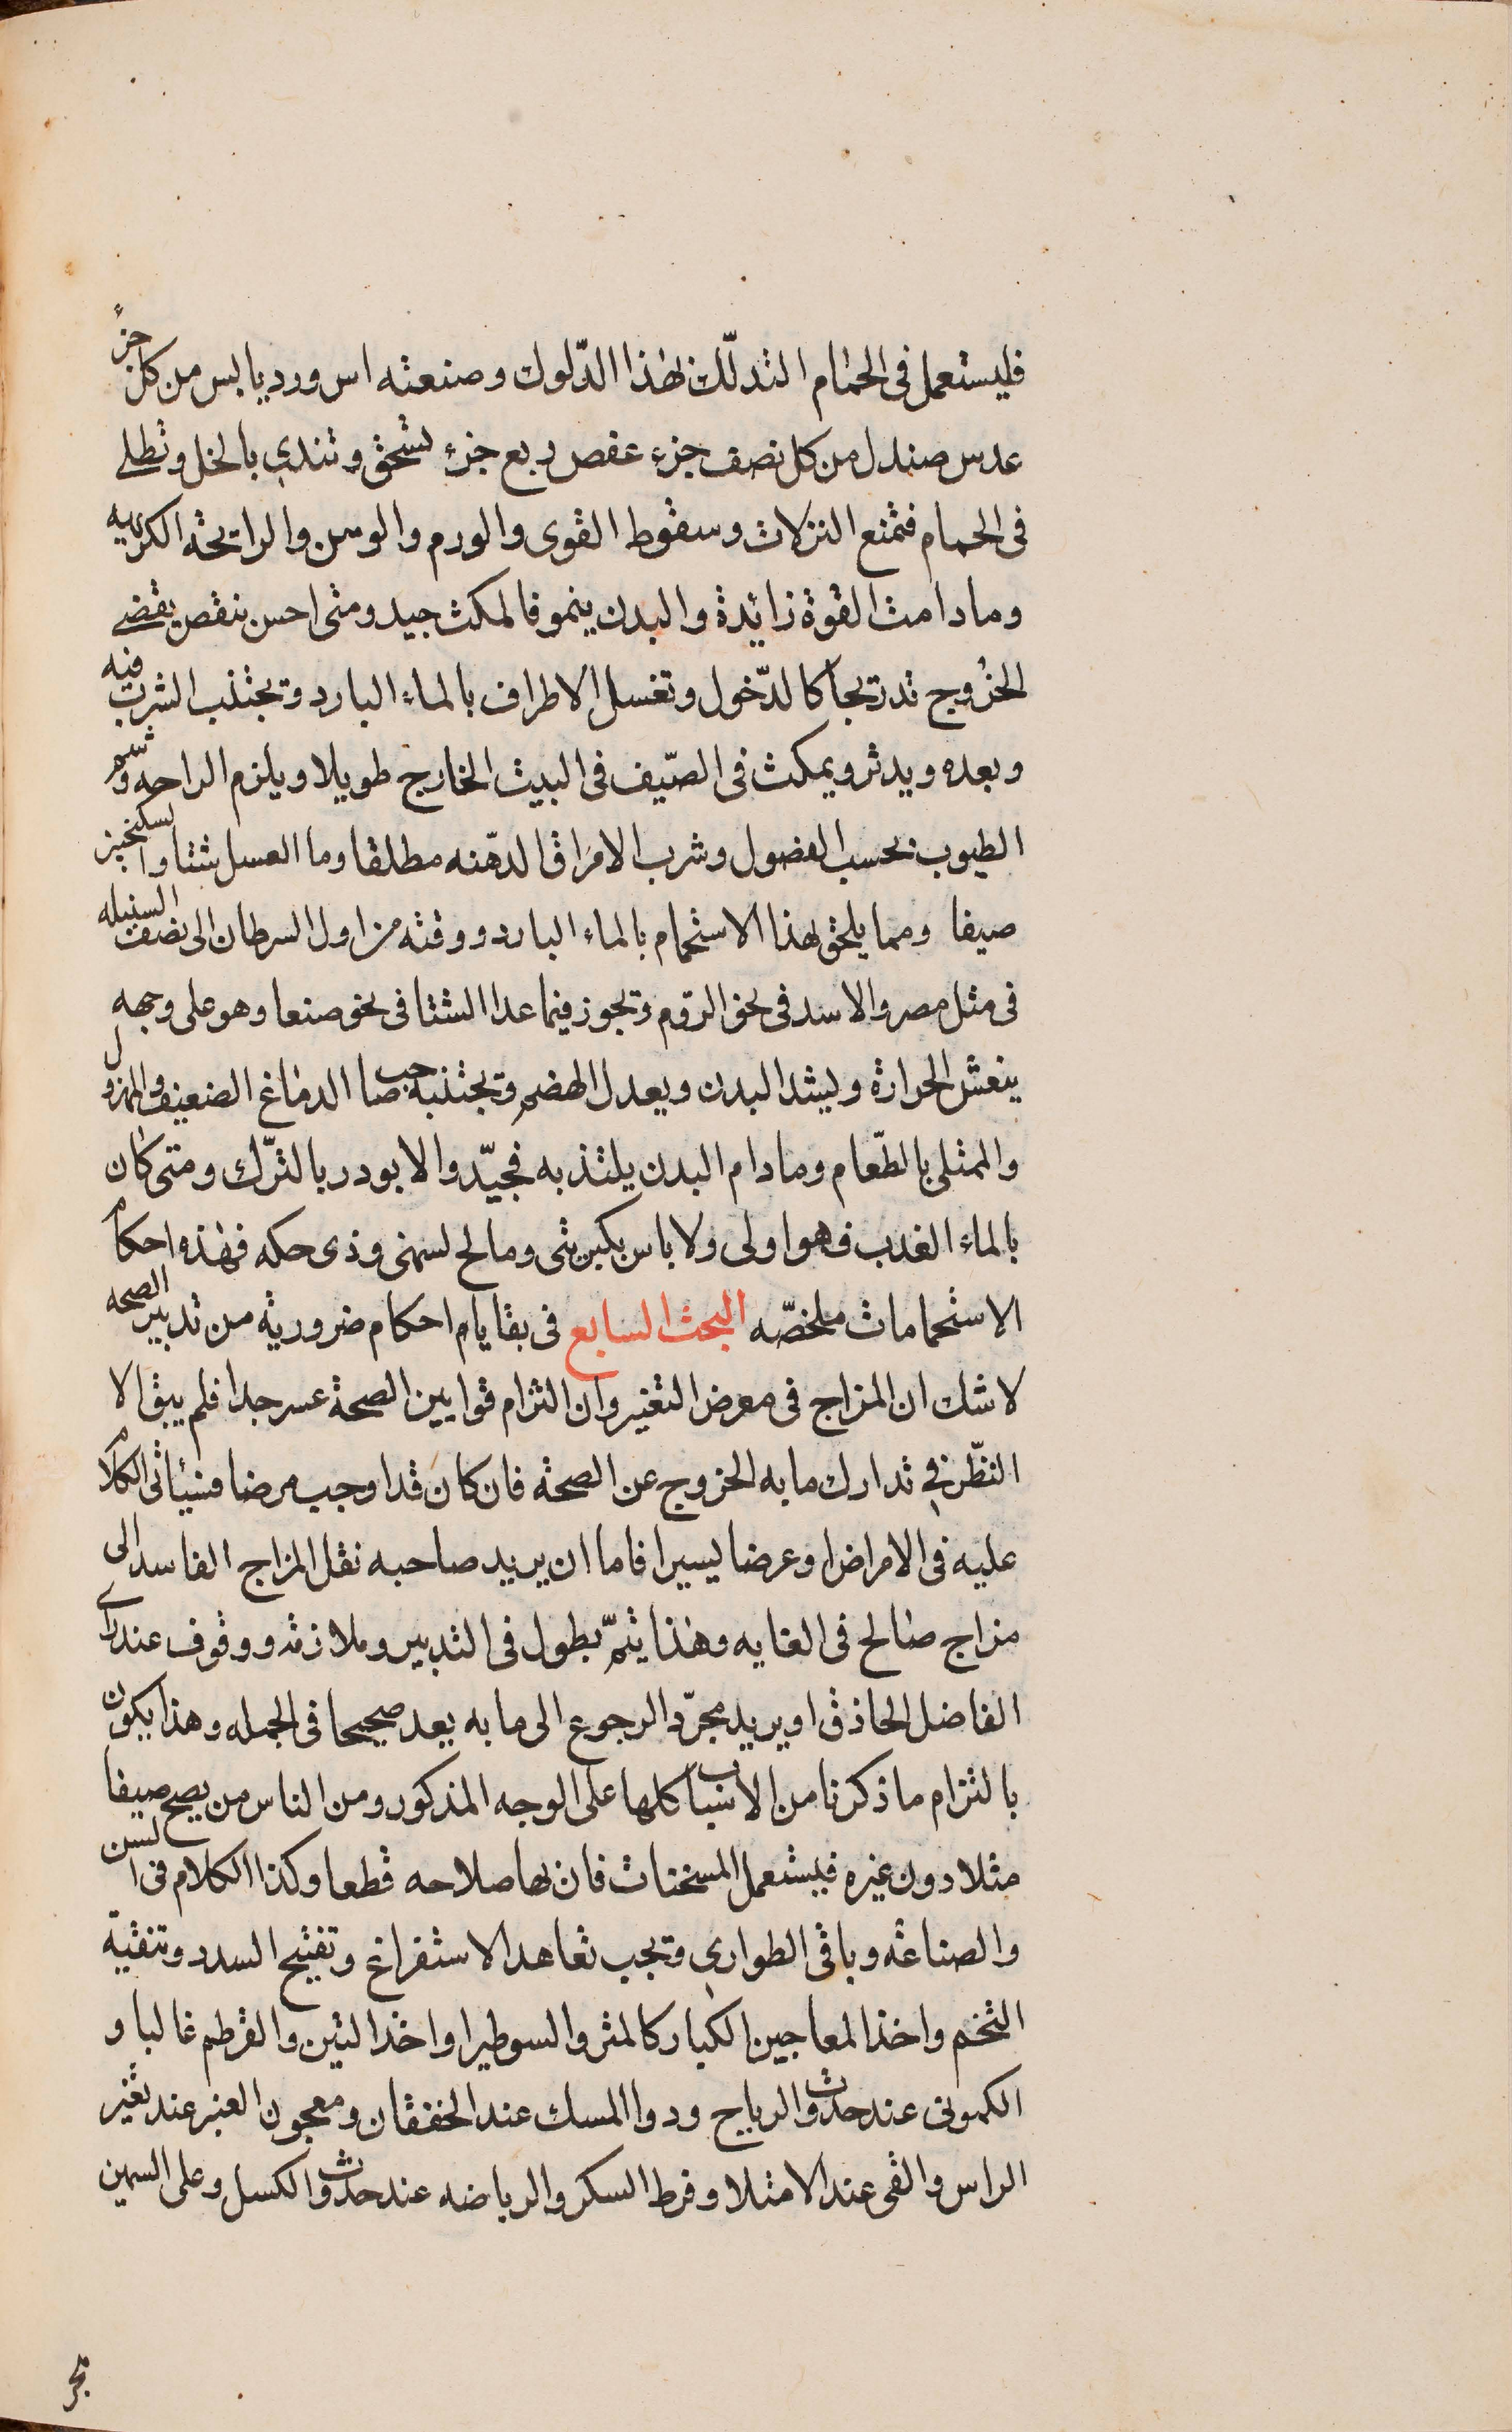 فليستعمل فى الحمام التدلّك بهذا الدّلوك وصنعته اس ورد يابس من كل جزء
عدس صندل من كل نصف جزء عفص ربع جزء تسحق وتندى بالخل وتطلى
فى الحمام فتمنع النزلات وسقوط القوى والورم والوسن والرائحة الكريه
وما دامت القوة زائدة والبدن ينمو فالمكث جيد ومتى احس بنقص يقضى
الخروج تدريجا كالدّخول وتغسل الاطراف بالماء البارد وتجتنب الشرب فيه
وبعده ويدثر ويمكث فى الصّيف فى البيت الخارج طويلا ويلزم الراحه وشم
الطيوب بحسب الفصول وشرب الامراق الدهنه مطلقا وما العسل شتا والسكنجبين
صيفا ومما يلحق بهذا الاستحمام بالماء البارد ووقته من اول السرطان الى نصف السنبله
فى مثل مصر والاسد فى نحو الرّوم وتجوز فيما عدا الشتا فى نحو صنعا وهو على وجهه
ينعش الحرارة ويشد البدن ويعدل الهضم وتجتنبه صاحب الدماغ الضعيف والمهزول
والممتلى بالطّعام وما دام البدن يلتذ به فجيّد والا بودر بالترّك ومتى كان
بالماء العذب فهو اولى ولا باس بكبريتى ومالح لسمنى وذى حكه فهذه احكام
الاستحمامات ملخصّه البحث السابع فى بقايا احكام ضرورية من تدبير الصحه
لا شك ان المزاج فى معرض التغير وان التزام قوانين الصحة عسر جدا فلم يبق الا
النظّر فى تدارك ما به الخروج عن الصحة فان كان قد اوجب مرضا فسيأتى الكلام
عليه فى الامراض او عرضا يسيرا فاما ان يريد صاحبه نقل المزاج الفاسد الى
مزاج صالح فى الغايه وهذا يتمّ بطول فى التدبير وملازمة ووقوف عند راى
الفاضل الحاذق او يريد مجرّد الرجوع الى ما به يعد صحيحا فى الجمله وهذا يكون
بالتزام ما ذكرنا من الاسباب كلها على الوجه المذكور ومن الناس من يصح صيفا
مثلا دون غيره فيستعمل المسخنات فان بها صلاحه قطعا وكذا الكلام فى السن
والصناعة وباقى الطوارى وتجب تعاهد الاستفراغ وتفتيح السدد وتنقية
التخم واخذ المعاجين الكبار كالمثر والسوطيرا واخذ التين والقرطم غالبا و
الكمونى عند حدوث الرياح ودوا المسك عند الخفقان ومعجون العنبر عند تغير
الراس والقى عند الامتلا وفرط السكر والرياضه عند حدوث الكسل وعلى السمين